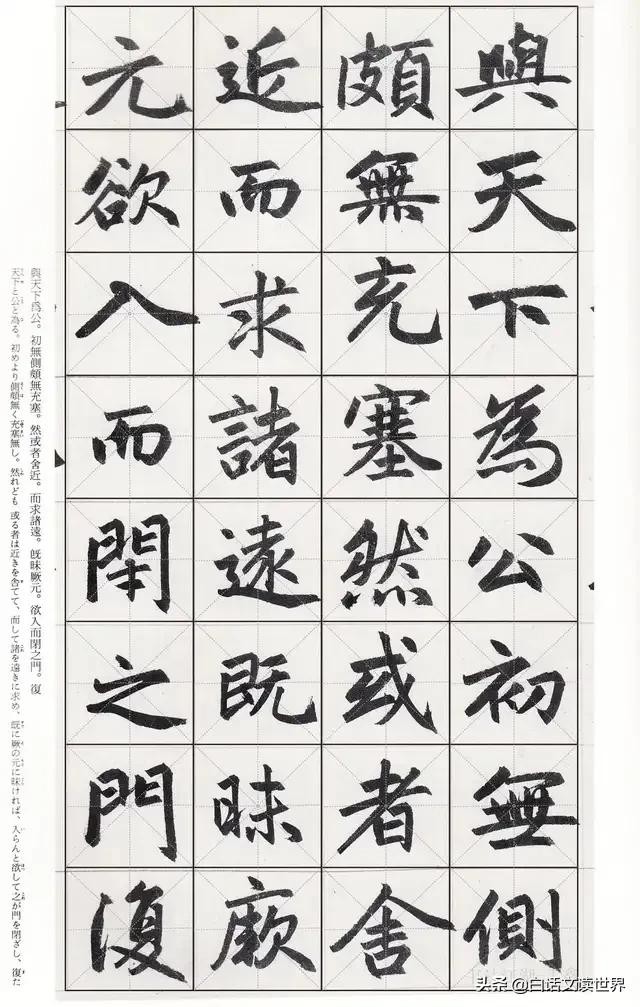 與天下為公初無側
頗無充塞然或者舍
近而求諸遠既昧厥
元欲入而閇之門復
與天下爲公。初無側頗無充塞。然或者舍近。而求諸遠。既昧厥元。欲入而閉之門。復
天下と公と為る。初めより側頗無く充塞無し。然れども或る者は近きを舎てて、而して諸を遠きに求め、既に厥の元に昧ければ、入らんと欲して之が門を閉ざし、復た
头条@白话文读世界